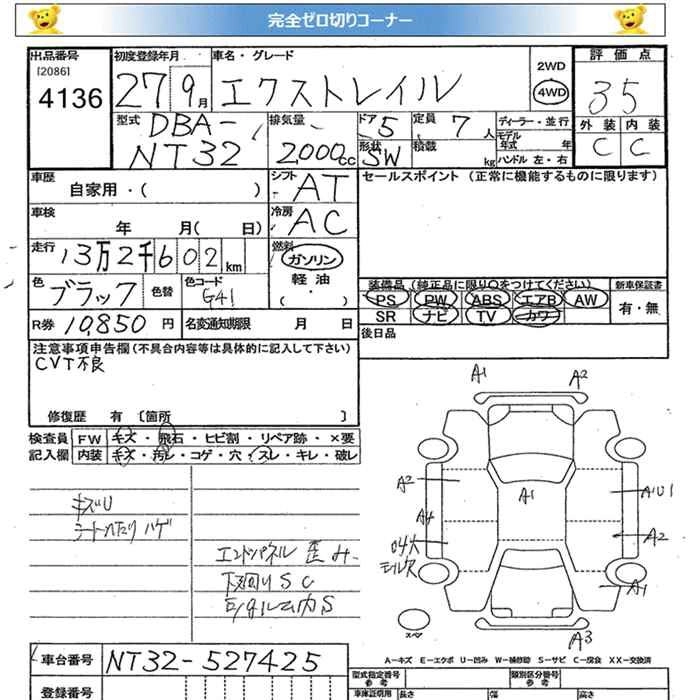 完全ゼロ切りコーナー
出品番号 初度登録年月 車名・グレード 評価点
[2086]
4136 27 9月 エクストレイル 2WD 4WD 35
型式 DBA- 排気量 ドア 5 定員 7人 ディーラー・並行 外装 内装
NT32 2,000cc 形状 SW 積載 kg モデル年式 年 C C
ハンドル 左・右
車歴 自家用・( ) シフト AT セールスポイント (正常に機能するものに限ります)
車検 年 月( 日) 冷房 AC
走行 13万2千602km 燃料 ガソリン
軽油
・( )
色 ブラック 色替 色コード G41 装備品(純正品に限り○をつけてください) 新車保証書
PS PW ABS エアB AW 有・無
SR ナビ TV カワ
R券 10,850円 名変通知期限 月 日 後日品
注意事項申告欄(不具合内容等は具体的に記入して下さい)
CVT不良
修復歴 有 〔箇所 〕
検査員 FW キズ・飛石・ヒビ割・リペア跡・×要
記入欄 内装 キズ・汚レ・コゲ・穴・スレ・キレ・破レ
キズU
ハゲ
エンドパネル 歪み
下回りS C
A1 A2
A2 A1 A1U1
A4 A2
A1
スペア
A3
A-キズ E-エクボ U-凹み W-補修跡 S-サビ C-腐食 XX-交換済
車台番号 NT32-527425
登録番号 型式指定番号 参考 類別区分番号 参考
車庫証明用 長さ 幅 高さ